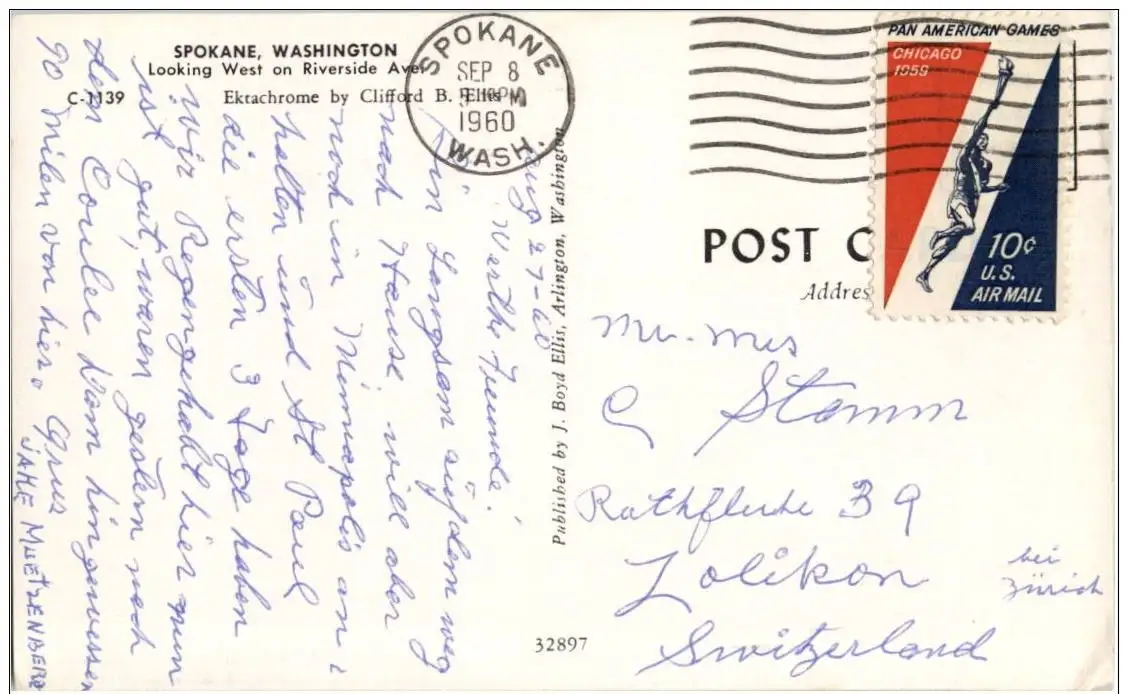 SPOKANE, WASHINGTON
Looking West on Riverside Ave.
C-1139 Ektachrome by Clifford B. Ellis
SPOKANE
SEP 8
PM
1960
WASH.
PAN AMERICAN GAMES
CHICAGO
1959
10¢
U.S.
AIR MAIL
POST C
Addres
Published by J. Boyd Ellis, Arlington, Washington
27-60
Werthe Freunde!
Bin Langsam auf dem weg
nach Hause, will aber
noch in Minnapolis an
halten und St Paul
die ersten 3 Tage haben
Wir Regen gehabt hier nun
ist gut, waren gestern nach
den Coulee Dam hingewessen
90 Milen von hier. Grus
JAKE MUETZENBERG
Mr. Mrs
C Stamm
Rathfluhe 39
Zolikon bei
Zürich
Switzerland
32897